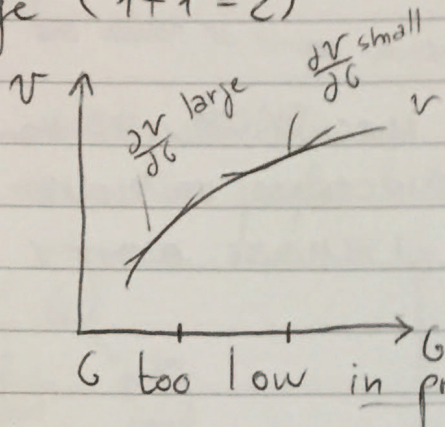 (1+1=2)
∂V/∂G large
∂V/∂G small
V
V
G
G too low in